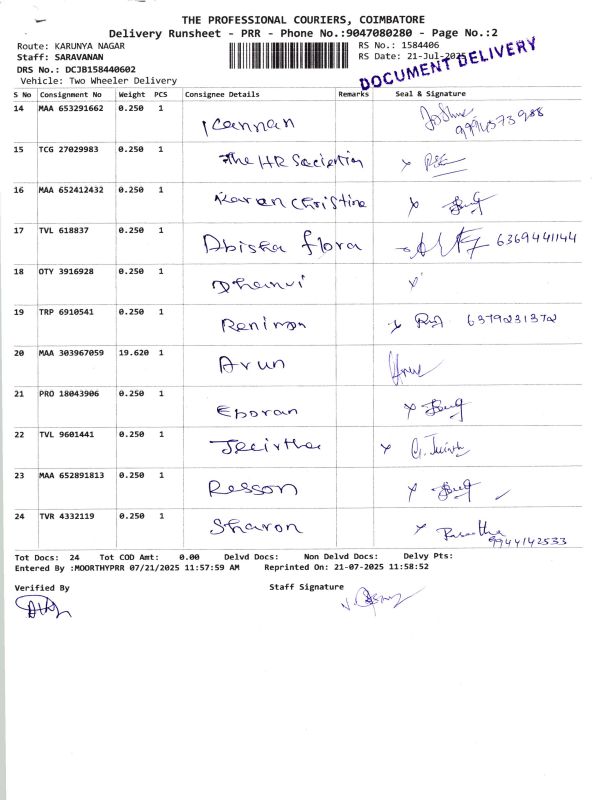 THE PROFESSIONAL COURIERS, COIMBATORE
Delivery Runsheet - PRR - Phone No.:9047080280 - Page No.:2
Route: KARUNYA NAGAR RS No.: 1584406
Staff: SARAVANAN RS Date: 21-Jul-2025
DOCUMENT DELIVERY
DRS No.: DCJB158440602
Vehicle: Two Wheeler Delivery
S No Consignment No Weight PCS Consignee Details Remarks Seal & Signature
14 MAA 653291662 0.250 1 Kannan
15 TCG 27029983 0.250 1 The HR
16 MAA 652412432 0.250 1 Karen Christina
17 TVL 618837 0.250 1 Abisha flora 6369441144
18 OTY 3916928 0.250 1 Dhanvi
19 TRP 6910541 0.250 1 Renimon 6379231372
20 MAA 303967059 19.620 1 Arun
21 PRO 18043906 0.250 1 Eporan
22 TVL 9601441 0.250 1
23 MAA 652891813 0.250 1 Resson
24 TVR 4332119 0.250 1 Sharon 9944142533
Tot Docs: 24 Tot COD Amt: 0.00 Delvd Docs: Non Delvd Docs: Delvy Pts:
Entered By :MOORTHYPRR 07/21/2025 11:57:59 AM Reprinted On: 21-07-2025 11:58:52
Verified By Staff Signature